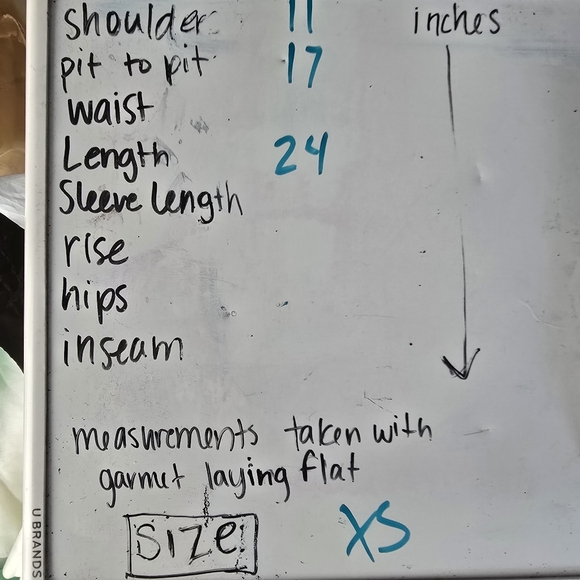 shoulder 11 inches
pit to pit 17
waist
Length 24
Sleeve length
rise
hips
inseam
measurements taken with
garmet laying flat
Size XS
U BRANDS